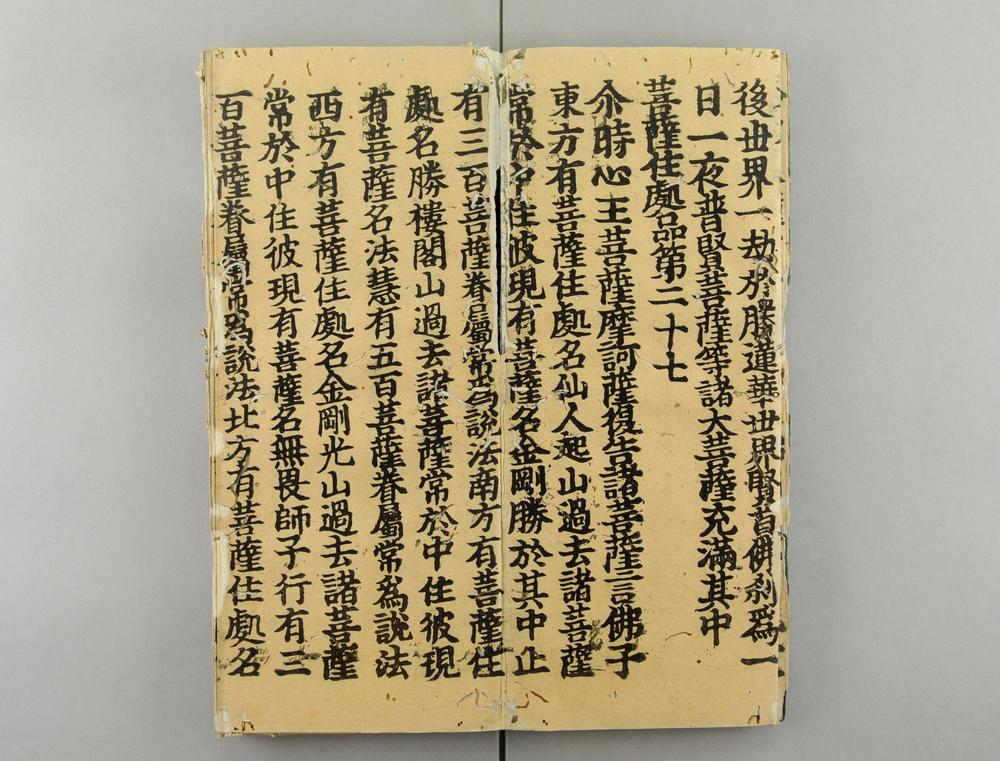 後世界一劫於勝蓮華世界賢首佛刹爲一
日一夜普賢菩薩等諸大菩薩充滿其中
菩薩住處品第二十七
尒時心王菩薩摩訶薩復告諸菩薩言佛子
東方有菩薩住處名仙人起山過去諸菩薩
常於中住彼現有菩薩名金剛勝於其中止
有三百菩薩眷屬常爲說法南方有菩薩住
處名勝樓閣山過去諸菩薩常於中住彼現
有菩薩名法慧有五百菩薩眷屬常爲說法
西方有菩薩住處名金剛光山過去諸菩薩
常於中住彼現有菩薩名無畏師子行有三
百菩薩眷屬常爲說法北方有菩薩住處名